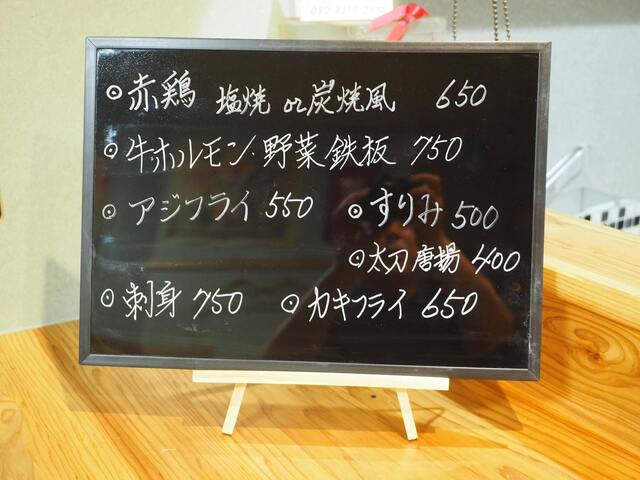 ⊙赤鶏 塩焼 or 炭焼風 650
⊙牛ホルモン・野菜鉄板 750
⊙アジフライ 550 ⊙すりみ 500
⊙太刀唐揚 400
⊙刺身 750 ⊙カキフライ 650